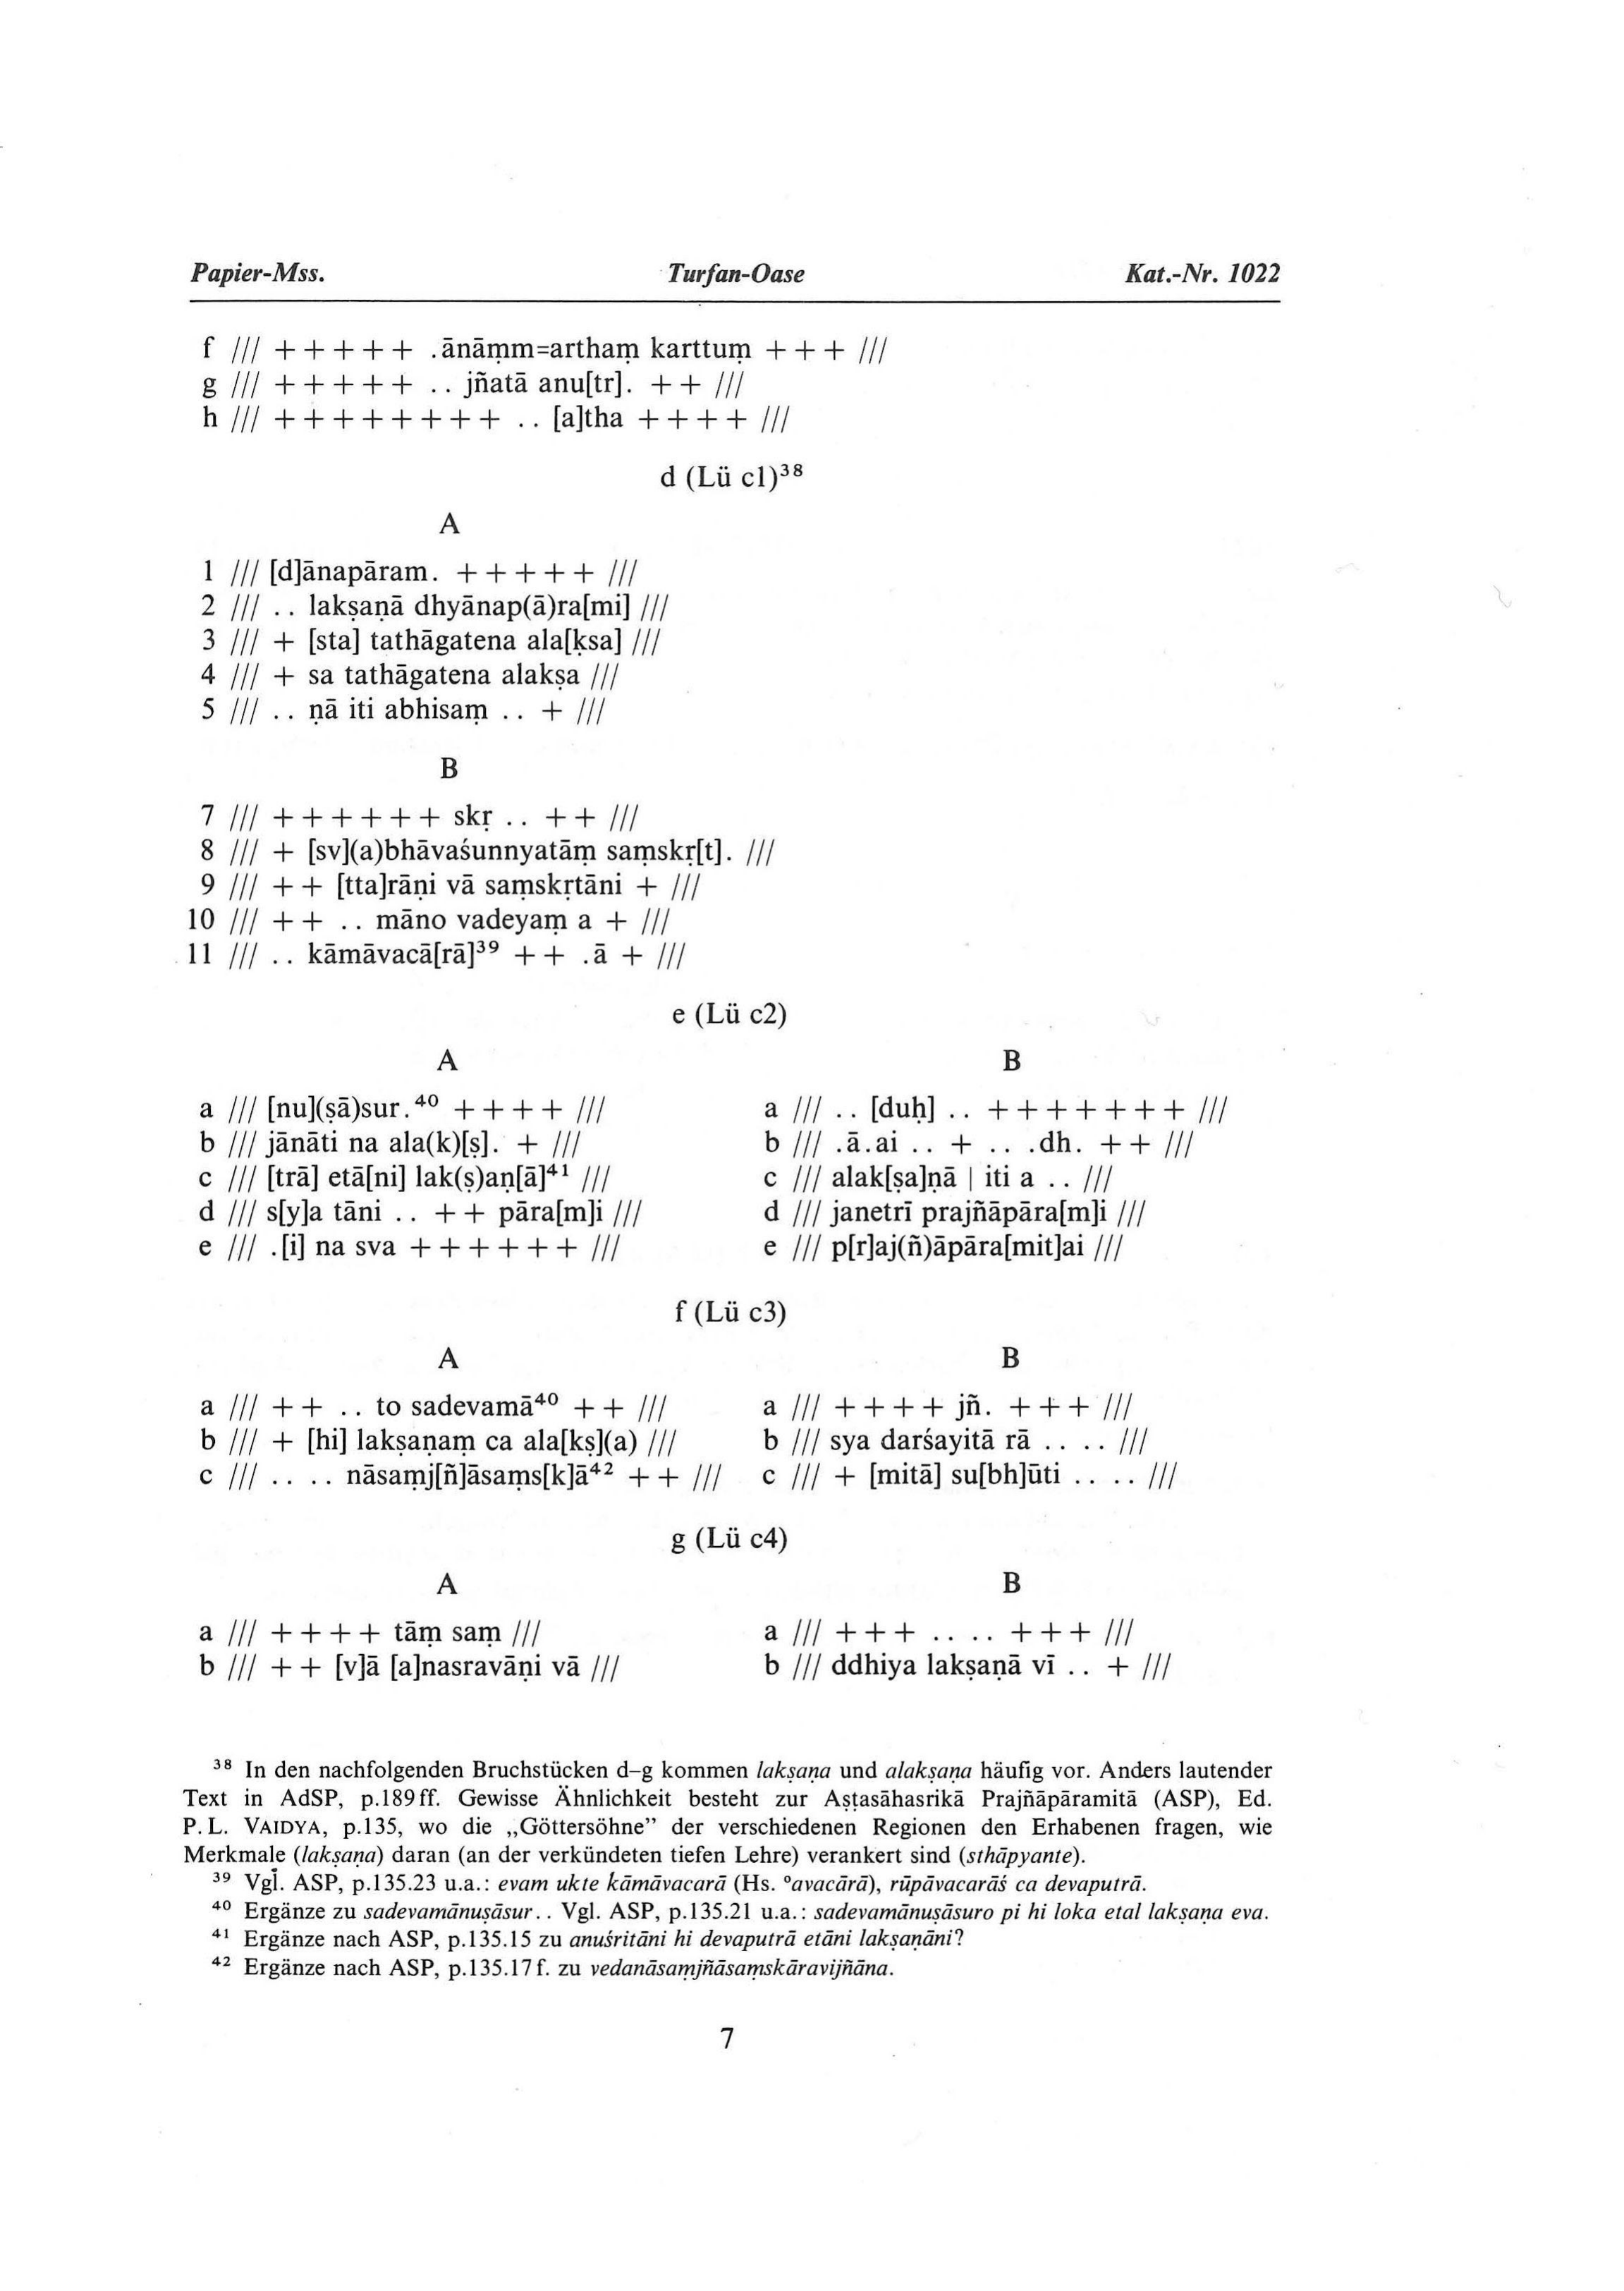 Papier-Mss. Turfan-Oase Kat.-Nr. 1022
f /// + + + + + .ānāṃm=arthaṃ karttuṃ + + + ///
g /// + + + + + .. jñatā anu[tr]. + + ///
h /// + + + + + + + + .. [a]tha + + + + ///
d (Lü c1)³⁸
A
1 /// [d]ānapāram. + + + + + ///
2 /// .. lakṣaṇā dhyānap(ā)ra[mi] ///
3 /// + [sta] tathāgatena ala[ḳsa] ///
4 /// + sa tathāgatena alakṣa ///
5 /// .. ṇā iti abhisaṃ .. + ///
B
7 /// + + + + + + skṛ .. + + ///
8 /// + [sv](a)bhāvaśunnyatāṃ saṃskṛ[t]. ///
9 /// + + [tta]rāṇi vā saṃskṛtāni + ///
10 /// + + .. māno vadeyaṃ a + ///
11 /// .. kāmāvacā[rā]³⁹ + + .ā + ///
e (Lü c2)
A
a /// [nu](ṣā)sur.⁴⁰ + + + + ///
b /// jānāti na ala(k)[ṣ]. + ///
c /// [trā] etā[ni] lak(ṣ)aṇ[ā]⁴¹ ///
d /// s[y]a tāni .. + + pāra[m]i ///
e /// .[i] na sva + + + + + + ///
B
a /// .. [duḥ] .. + + + + + + + ///
b /// .ā.ai .. + .. .dh. + + ///
c /// alak[ṣa]ṇā | iti a .. ///
d /// janetrī prajñāpāra[m]i ///
e /// p[r]aj(ñ)āpāra[mit]ai ///
f (Lü c3)
A
a /// + + .. to sadevamā⁴⁰ + + ///
b /// + [hi] lakṣaṇaṃ ca ala[kṣ](a) ///
c /// .. .. nāsaṃj[ñ]āsaṃs[k]ā⁴² + + ///
B
a /// + + + + jñ. + + + ///
b /// sya darśayitā rā .. .. ///
c /// + [mitā] su[bh]ūti .. .. ///
g (Lü c4)
A
a /// + + + + tāṃ saṃ ///
b /// + + [v]ā [a]nasravāṇi vā ///
B
a /// + + + .. .. + + + ///
b /// ddhiya lakṣaṇā vī .. + ///
³⁸ In den nachfolgenden Bruchstücken d–g kommen lakṣaṇa und alakṣaṇa häufig vor. Anders lautender
Text in AdSP, p.189ff. Gewisse Ähnlichkeit besteht zur Aṣṭasāhasrikā Prajñāpāramitā (ASP), Ed.
P. L. VAIDYA, p.135, wo die „Göttersöhne” der verschiedenen Regionen den Erhabenen fragen, wie
Merkmale (lakṣaṇa) daran (an der verkündeten tiefen Lehre) verankert sind (sthāpyante).
³⁹ Vgl. ASP, p.135.23 u.a.: evam ukte kāmāvacarā (Hs. °avacārā), rūpāvacarāś ca devaputrā.
⁴⁰ Ergänze zu sadevamānuṣāsur.. Vgl. ASP, p.135.21 u.a.: sadevamānuṣāsuro pi hi loka etal lakṣaṇa eva.
⁴¹ Ergänze nach ASP, p.135.15 zu anuśritāni hi devaputrā etāni lakṣaṇāni?
⁴² Ergänze nach ASP, p.135.17f. zu vedanāsaṃjñāsaṃskāravijñāna.
7